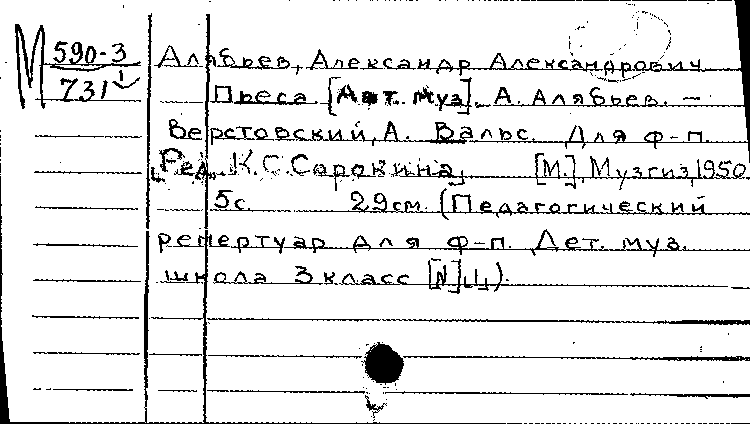 М 590-3
731
Алябьев, Александр Александрович
Пьеса. [Авт. муз]. А. Алябьев. —
Верстовский, А. Вальс. Для ф-п.
Ред. К.С. Сорокина, [М.], Музгиз, 1950
5с. 29см. (Педагогический
репертуар для ф-п. Дет. муз.
школа 3 класс